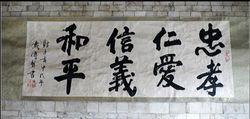 忠孝
仁愛
信義
和平